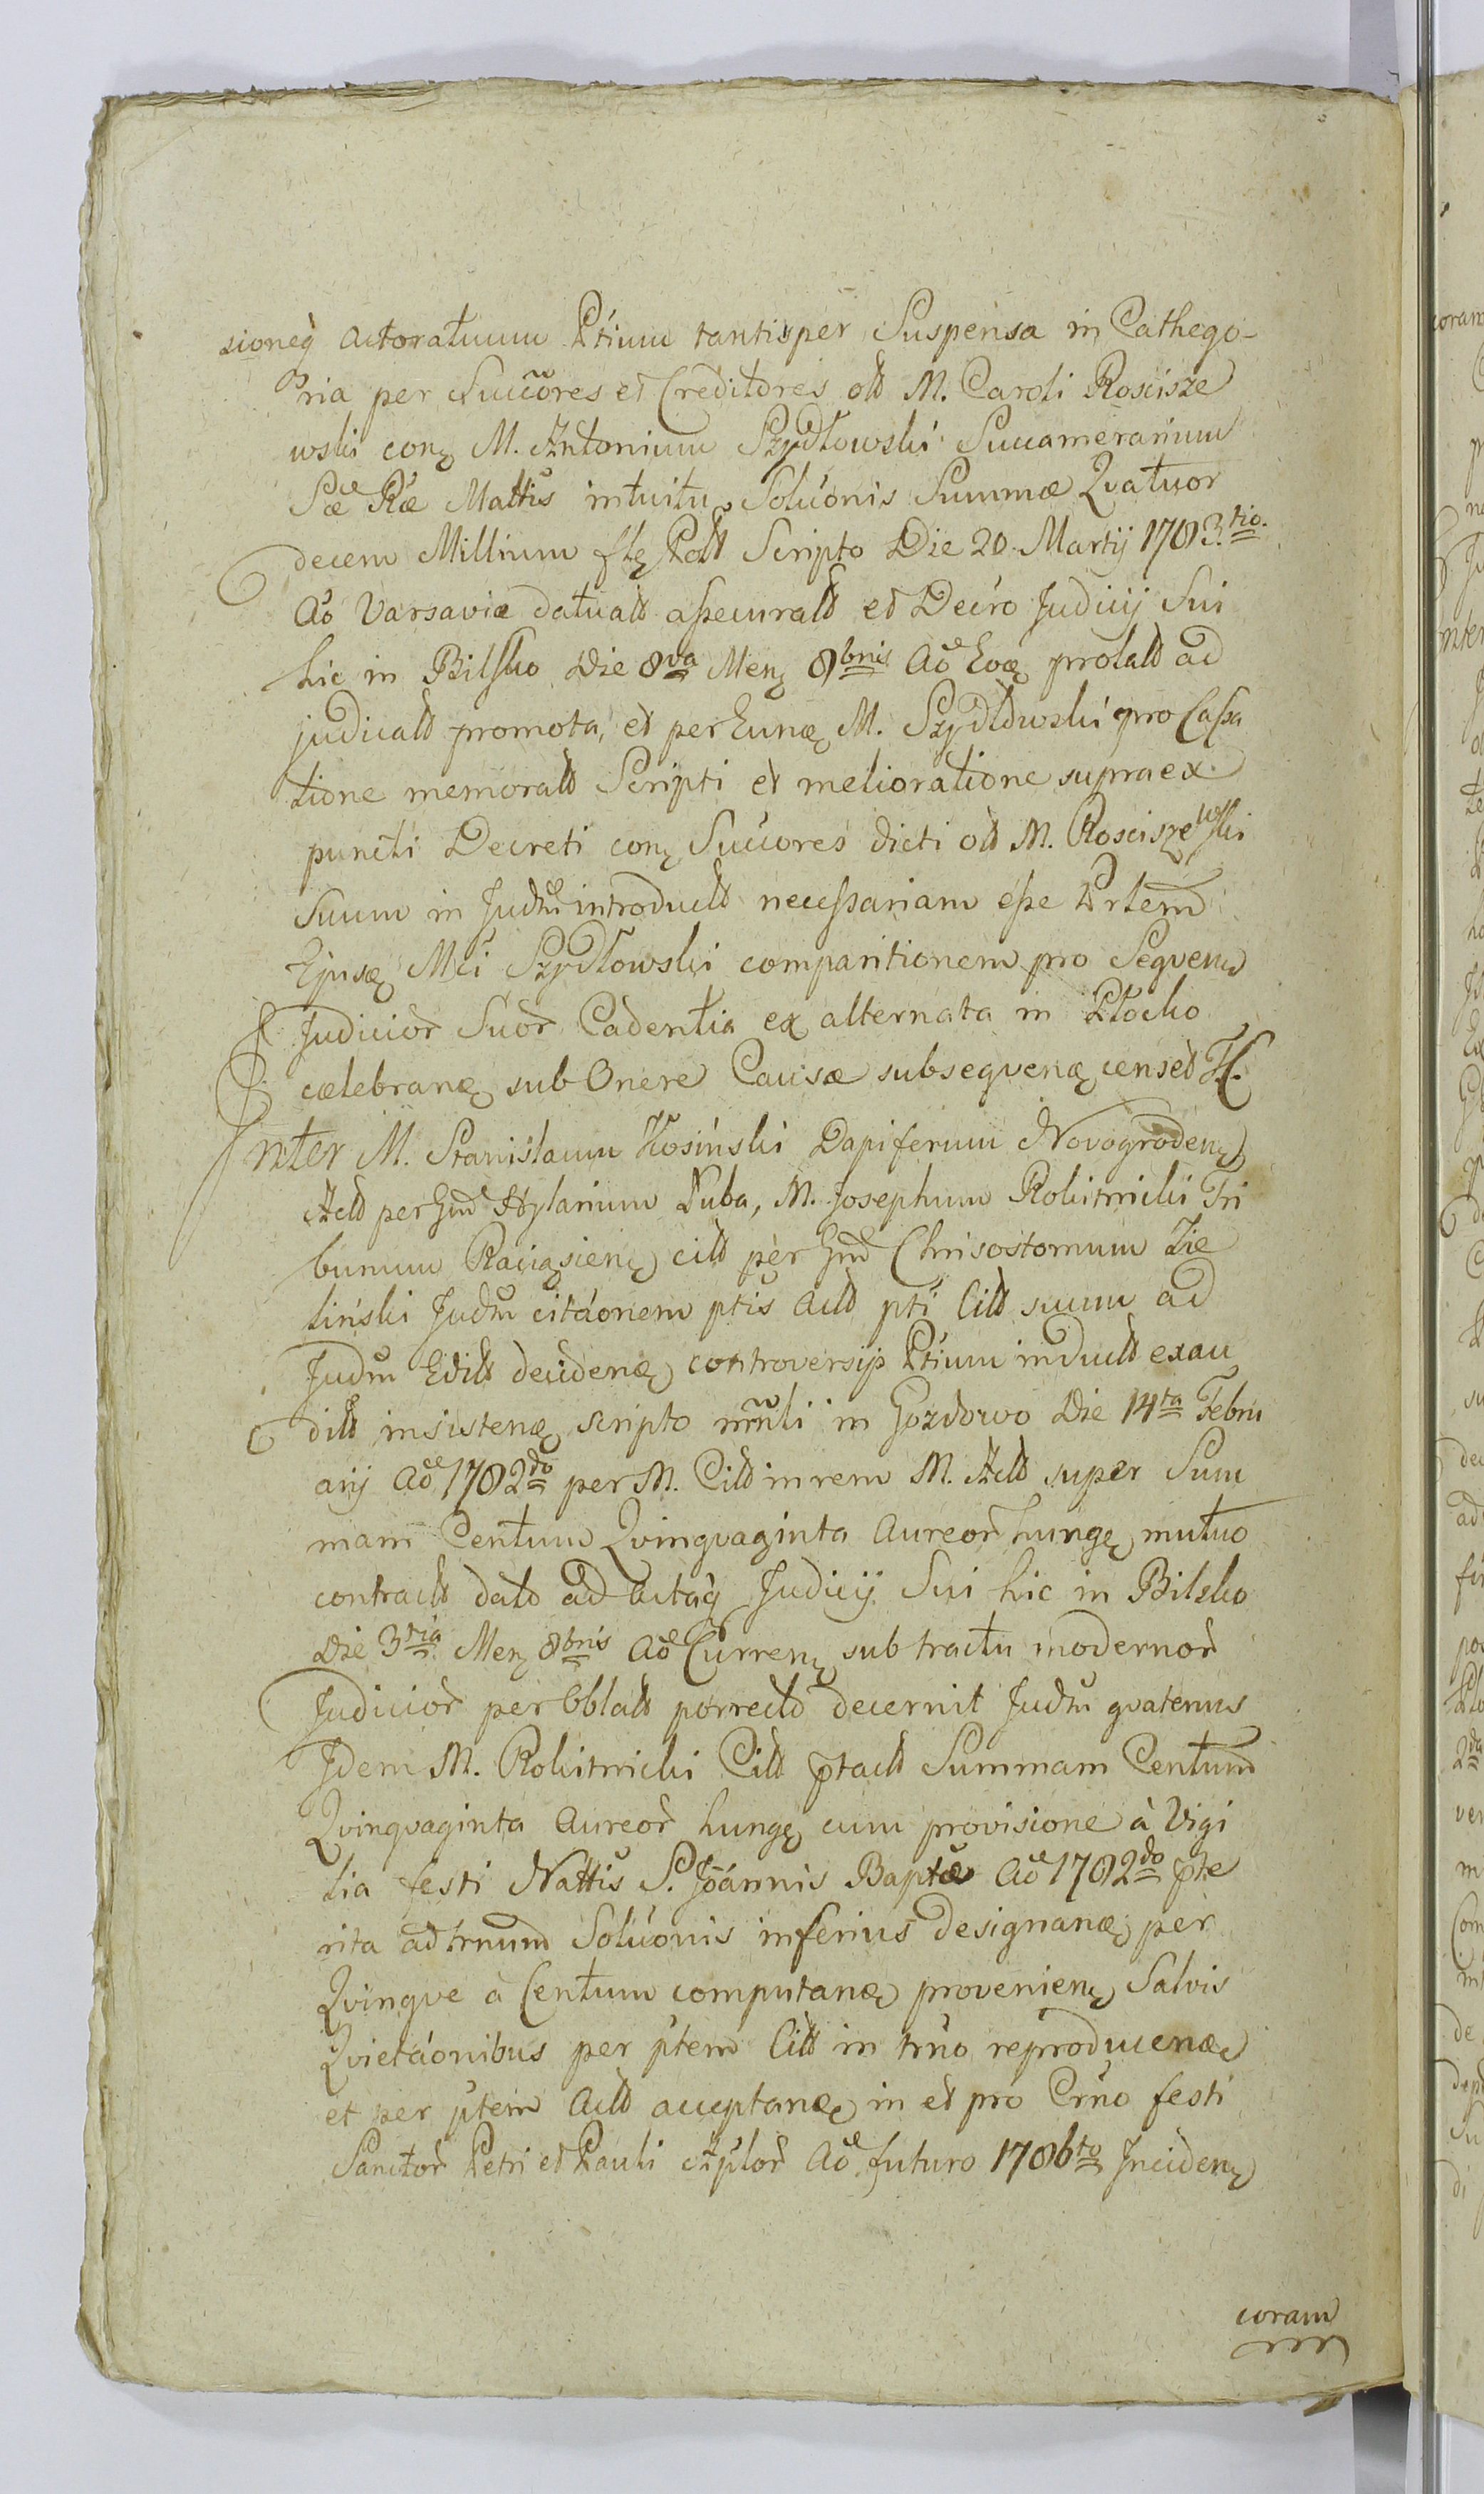 sioneq̀ actoratuum Ptium tantisper Suspensa in Cathego-
ria per Succõres et Creditores olt M. Caroli Roscisze
wski conȝ M. Antonium Szydłowski Succamerarium
Sæ Ræ Mattis intuitu Soluonis Summæ Qvatuor
decem Millium flȝ Polt Scripto Die 20. Martij 1783.tio.
Aõ Varsaviæ datualt assecuralt et Decro Judicij Sui
hic in Bilsko Die 8va Menȝ 8bris Aõ Eoȝ prolalt ad
judicalt promota, et per Eunȝ M. Szydłowski pro Cassa
tione memoralt Scripti et melioratione supra ex
puncti Decreti conȝ Succores dicti olt M. Roscisze wski
suum in Judm introduclt necessariam esse Prtem
Ejusȝ Mci Szydłowski comparitionem pro Seqvenȝ
Judicior Suor Cadentia ex alternata in Płocko
cælebranȝ sub Onere Causæ subseqvenȝ censet H.
Inter M. Stanislaum Kosiński Dapiferum Novogrodenȝ
Aclt per Gm Hylarium Duba, M. Josephum Rokitnicki Tri
bunum Raciązienȝ citt per Gm Chrisostomum Zie
liński Judm citaonem ptis Actt pti Citt suum ad
Judm Edilt decidenȝ controversijs Ptium induclt exau
dilt insistenȝ scripto mnli in Gozdowo Die 14ta Febru
arij Aõ 1782do per M. Citt in rem M. Actt super Sum
mam Centum Qvinqvaginta Aureor hungȝ mutuo
contractt dato ad actaq̀ Judicij Sui hic in Bilsko
Die 3tia Menȝ 8bris Aõ Currenȝ sub tractu modernor
Judicior per Oblatt porrecto decernit Judm qvatenus
Idem M. Rokitnicki Citt ptactt Summam Centum
Qvinqvaginta Aureor hungȝ cum provisione à Vigi
lia festi Nattis S. Joannis Baptæ Aõ 1782do pte
rita ad trnum Soluonis inferius designanȝ per
Qvinqve a Centum computanȝ provenienȝ Salvis
Qvietaonibus per ptem Citt in trno reproducenȝ
et per ptem Actt acceptanȝ in et pro Crno festi
Sanctor Petri et Pauli Aplor Aõ futuro 1786to Incidenȝ
coram